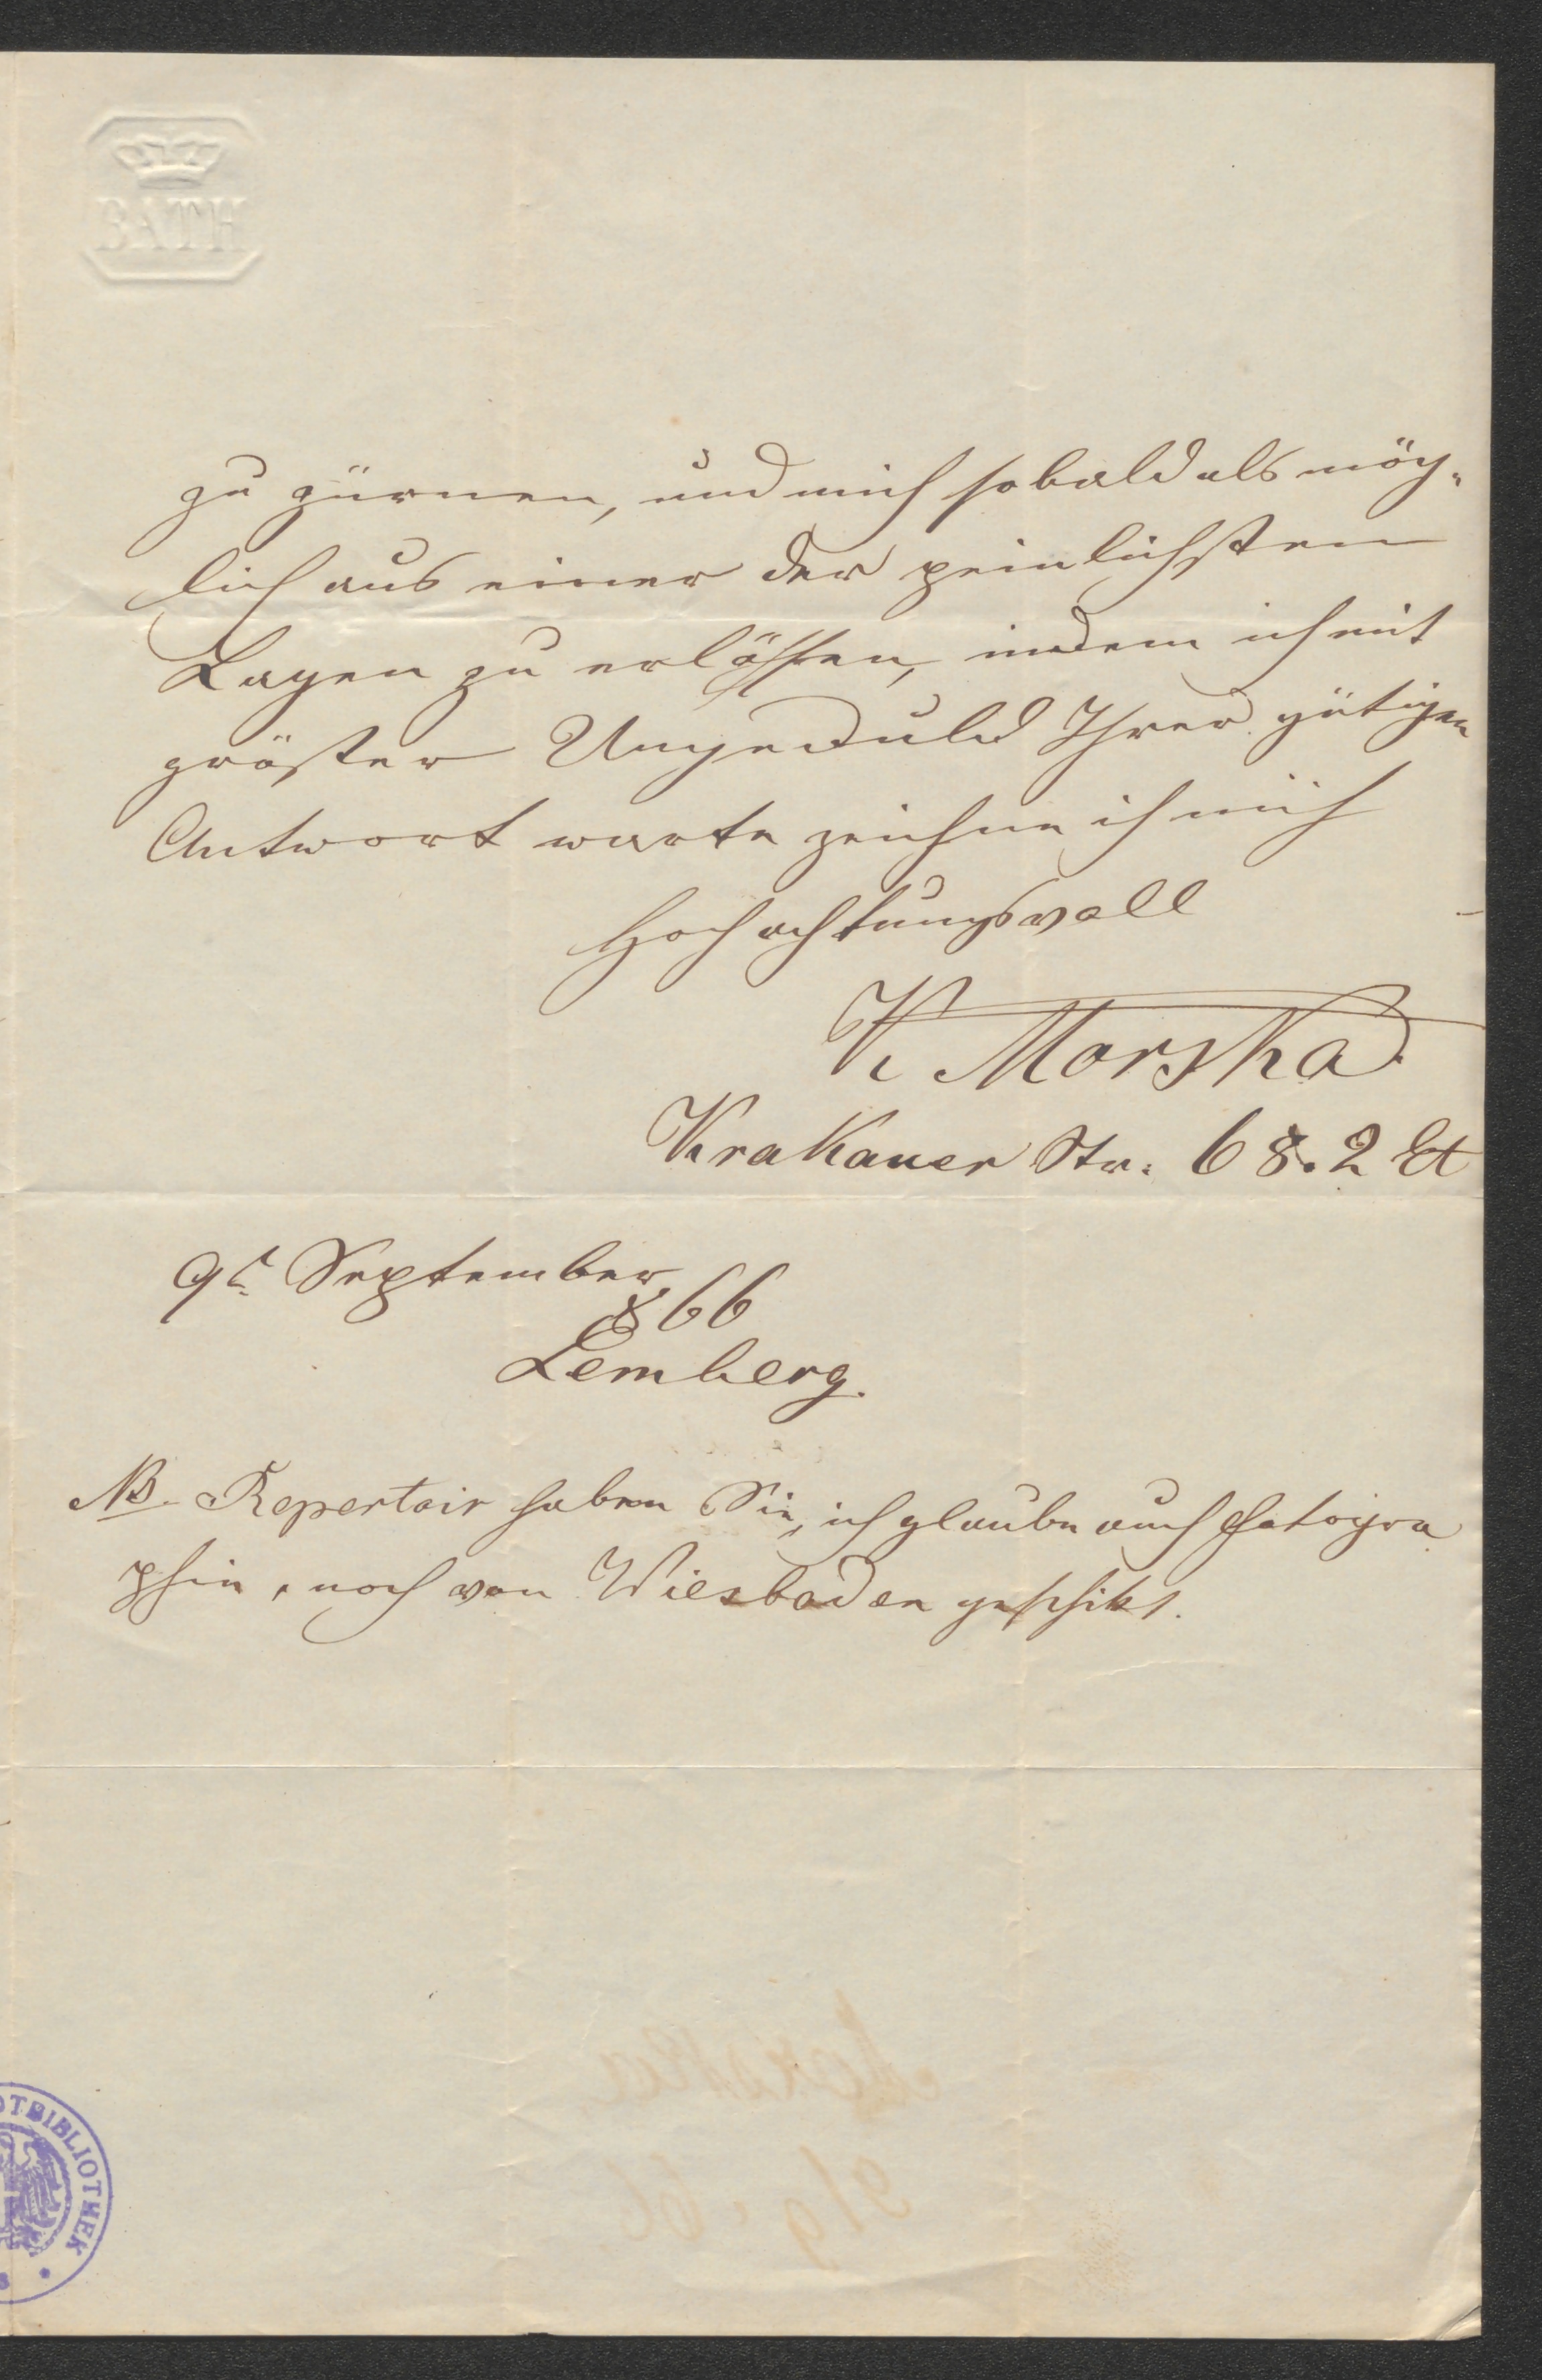 BATH
zu zürnen, und mich sobald als mög-
lich aus einer der peinlichsten
Lagen zu erlössen, indem ich mit
gröster Ungeduld Ihrer gütigen
Antwort warte zeichne ich mich
Hochachtungsvoll
K. Morska
Krakauer Str: 68. 2 Et
9t. September
866
Lemberg.
NB. Repertoir haben Sie, ich glaube auch Fotogra
phie, noch von Wiesbaden geschikt.
OTBIBLIOTHEK